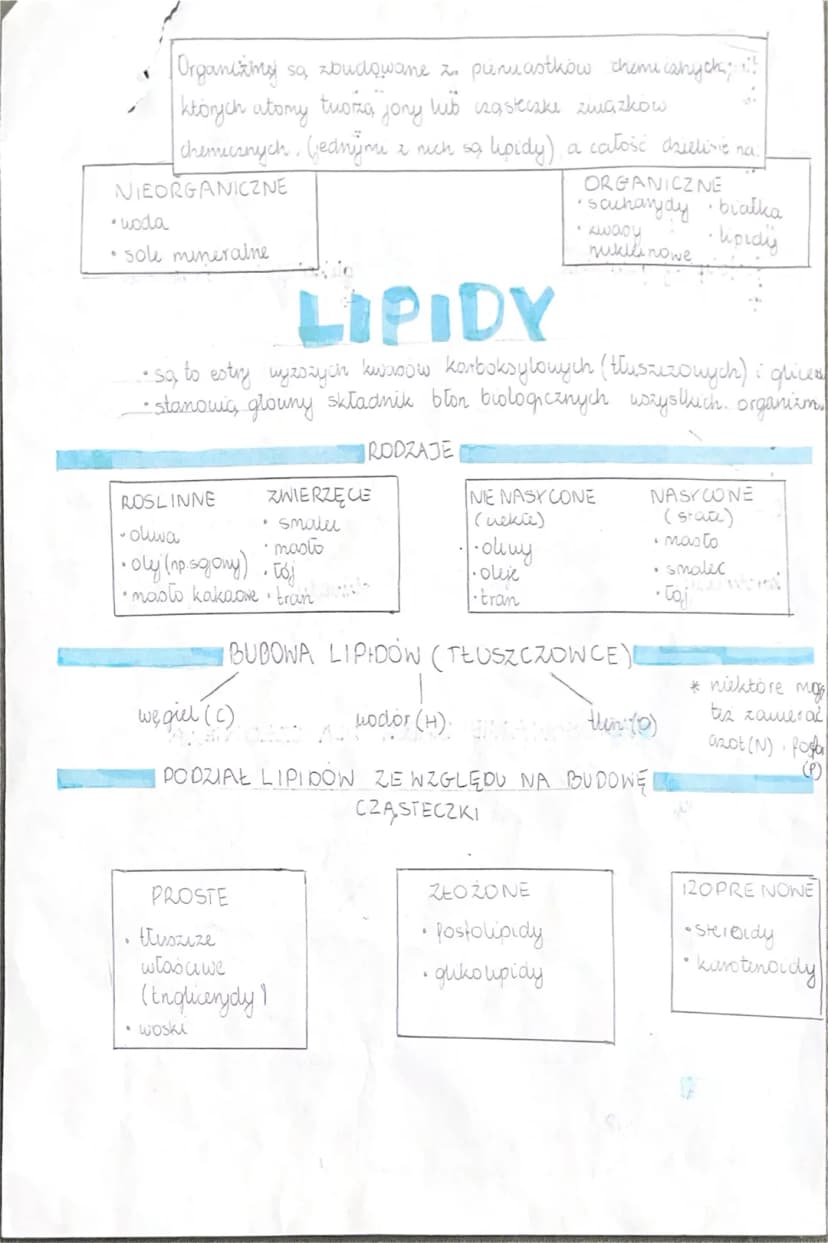 Organizmy są zbudowane z pierwiastków chemicznych,
których atomy tworzą jony lub cząsteczki związków
chemicznych. (jednymi z nich są lipidy) a całość dzieli się na:
NIEORGANICZNE
• woda
• sole mineralne
ORGANICZNE
• sacharydy • białka
• kwasy • lipidy
nukleinowe
LIPIDY
• są to estry wyższych kwasów karboksylowych (tłuszczowych) i
• stanowią główny składnik błon biologicznych wszystkich
RODZAJE
ROŚLINNE
• oliwa
• olej (np. sojowy)
• masło kakaowe
ZWIERZĘCE
• smalec
• masło
• łój
• tran
NIENASYCONE
(ciekłe)
• oliwy
• oleje
• tran
NASYCONE
(stałe)
• masło
• smalec
• łój
BUDOWA LIPIDÓW (TŁUSZCZOWCE)
węgiel (C) wodór (H) tlen (O)
* niektóre
też zawierać
azot (N) i
(P)
PODZIAŁ LIPIDÓW ZE WZGLĘDU NA BUDOWĘ
CZĄSTECZKI
PROSTE
• tłuszcze
właściwe
(triglicerydy)
• woski
ZŁOŻONE
• fosfolipidy
• glikolipidy
IZOPRENOWE
• steroidy
• karotenoidy